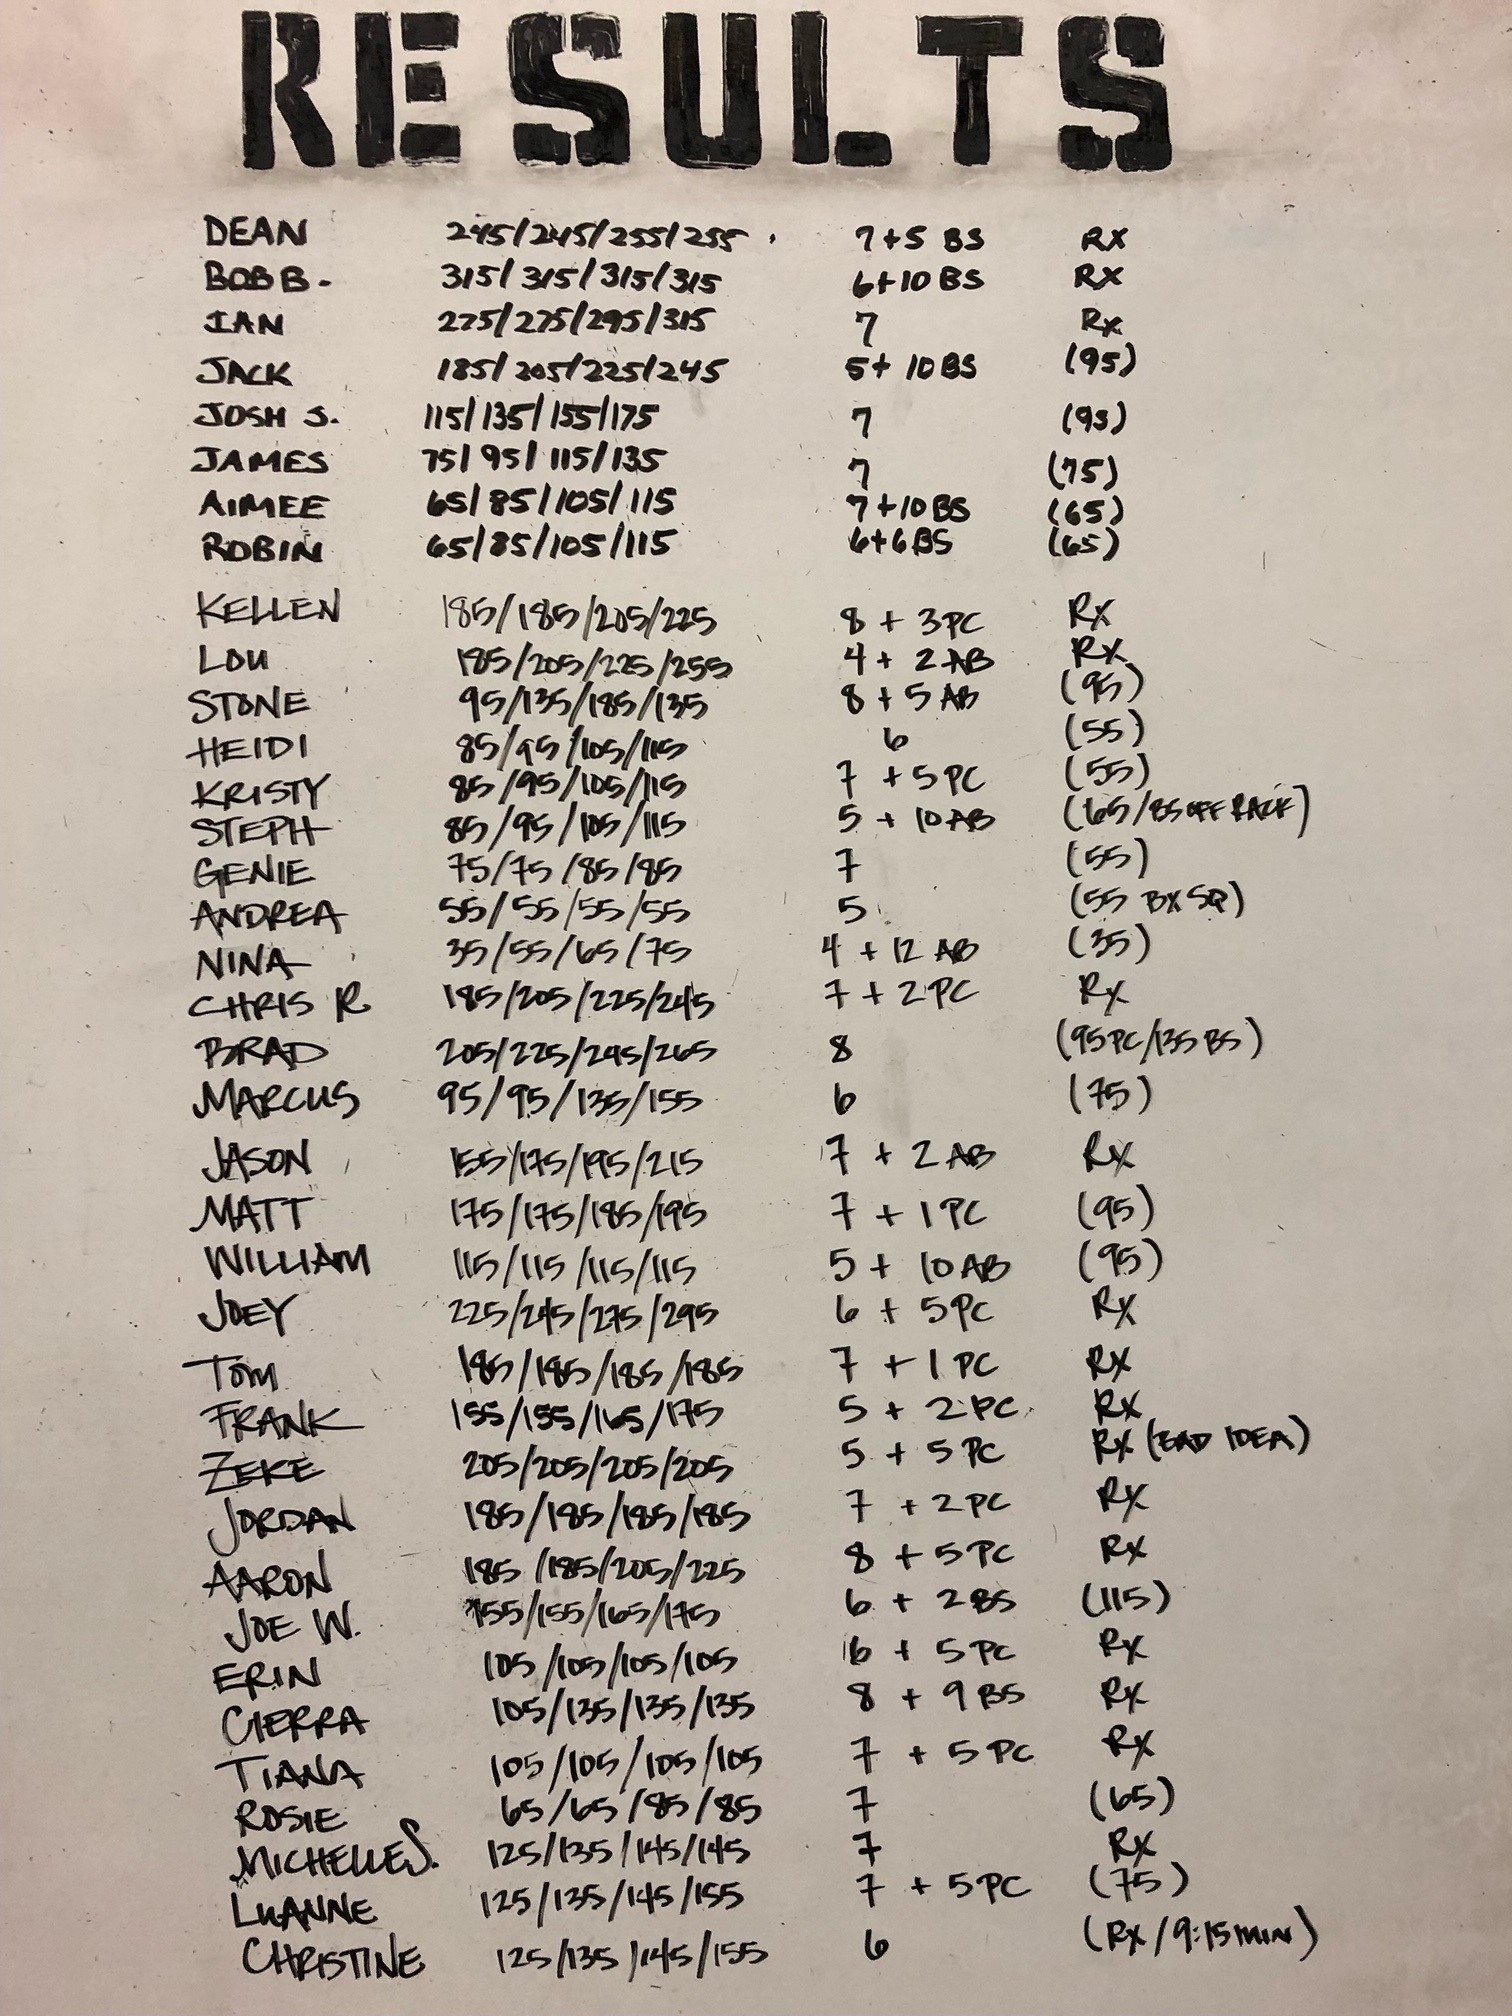 RESULTS
DEAN 245/245/255/255 7+5 BS RX
BOB B. 315/315/315/315 6+10 BS RX
IAN 275/275/295/315 7 RX
JACK 185/205/225/245 5+ 10 BS (95)
JOSH S. 115/135/155/175 7 (95)
JAMES 75/95/115/135 7 (75)
AIMEE 65/85/105/115 7+10 BS (65)
ROBIN 65/85/105/115 6+6 BS (65)
KELLEN 185/185/205/225 8 + 3 PC RX
LOU 185/205/225/255 4 + 2 AB RX
STONE 95/135/185/135 8 + 5 AB (95)
HEIDI 85/95/105/115 6 (55)
KRISTY 85/95/105/115 7 + 5 PC (55)
STEPH 85/95/105/115 5 + 10 AB (65/BS OFF RACK)
GENIE 75/75/85/85 7 (55)
ANDREA 55/55/55/55 5 (55 BX SQ)
NINA 35/55/65/75 4 + 12 AB (35)
CHRIS R 185/205/225/245 7 + 2 PC RX
BRAD 205/225/245/265 8 (95 PC/135 BS)
MARCUS 95/95/135/155 6 (75)
JASON 155/175/195/215 7 + 2 AB RX
MATT 175/175/185/195 7 + 1 PC (95)
WILLIAM 115/115/115/115 5 + 10 AB (95)
JOEY 225/245/275/295 6 + 5 PC RX
TOM 185/185/185/185 7 + 1 PC RX
FRANK 155/155/165/175 5 + 2 PC RX
ZEKE 205/205/205/205 5 + 5 PC RX (BAD IDEA)
JORDAN 185/185/185/185 7 + 2 PC RX
AARON 185/185/205/225 8 + 5 PC RX
JOE W. 155/155/165/175 6 + 2 BS (115)
ERIN 105/105/105/105 6 + 5 PC RX
CIERRA 105/135/135/135 8 + 9 BS RX
TIANA 105/105/105/105 7 + 5 PC RX
ROSIE 65/65/85/85 7 (65)
MICHELLE S. 125/135/145/145 7 RX
LUANNE 125/135/145/155 7 + 5 PC (75)
CHRISTINE 125/135/145/155 6 (RX/9:15 MIN)